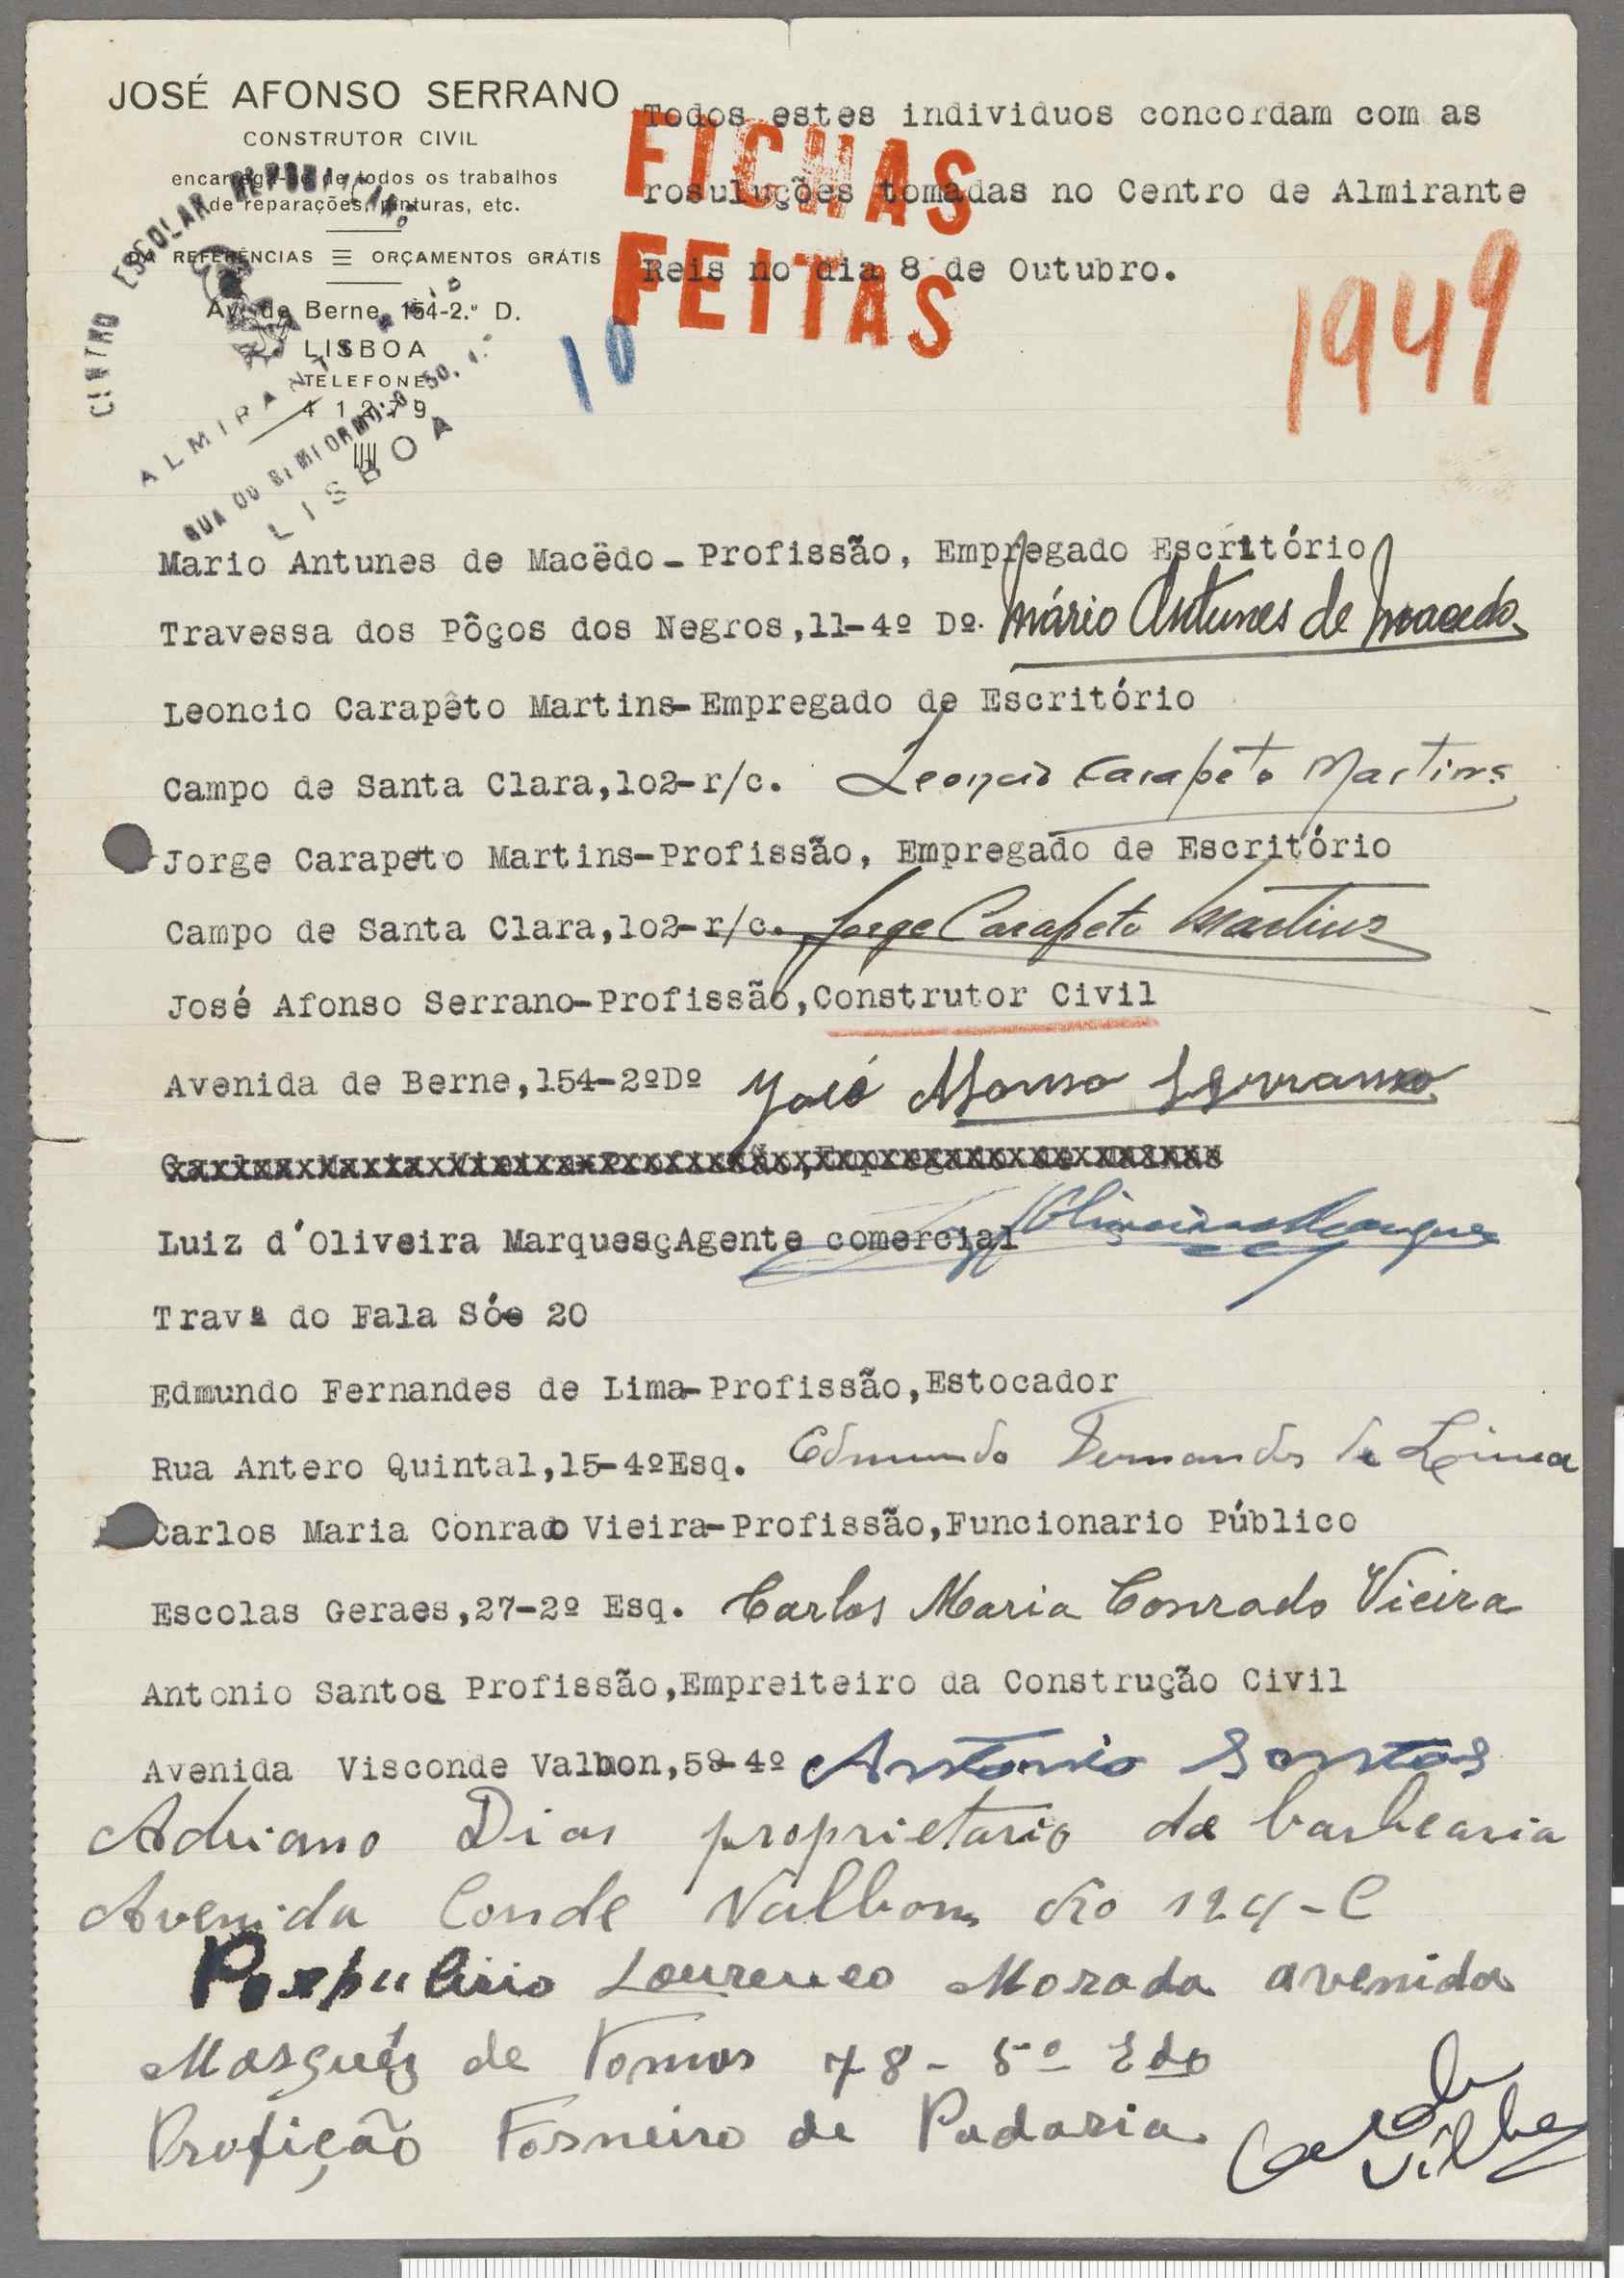 JOSÉ AFONSO SERRANO
CONSTRUTOR CIVIL
encarrega-se de todos os trabalhos
de reparações, pinturas, etc.
DÁ REFERÊNCIAS ORÇAMENTOS GRÁTIS
Av. de Berne, 154-2.º D.
LISBOA
TELEFONE
4 1279
CENTRO ESCOLAR REPUBLICANO
ALMIRANTE
LISBOA
Todos estes individuos concordam com as
rosuluções tomadas no Centro de Almirante
Reis no dia 8 de Outubro.
FICHAS
FEITAS
10
1949
Mario Antunes de Macëdo-Profissão, Empregado Escritório
Travessa dos Pôços dos Negros,11-4º Dº. Mário Antunes de Macedo
Leoncio Carapêto Martins-Empregado de Escritório
Campo de Santa Clara,102-r/c. Leoncio Carapeto Martins
Jorge Carapeto Martins-Profissão, Empregado de Escritório
Campo de Santa Clara,102-r/c. Jorge Carapeto Martins
José Afonso Serrano-Profissão,Construtor Civil
Avenida de Berne,154-2ºDº José Afonso Serrano
Luiz d'Oliveira MarquesçAgente comercial
Travª do Fala Só 20
Edmundo Fernandes de Lima-Profissão,Estocador
Rua Antero Quintal,15-4ºEsq. Edmundo Fernandes de Lima
Carlos Maria Conrado Vieira-Profissão,Funcionario Público
Escolas Geraes,27-2º Esq. Carlos Maria Conrado Vieira
Antonio Santos Profissão,Empreiteiro da Construção Civil
Avenida Visconde Valbon,59-4º Antonio Santos
Adriano Dias proprietario de barbearia
Avenida Conde Valbom No 124-C
Lourenco Morada avenida
Marquez de Tomar 78-5º Edo
Profição Forneiro de Padaria